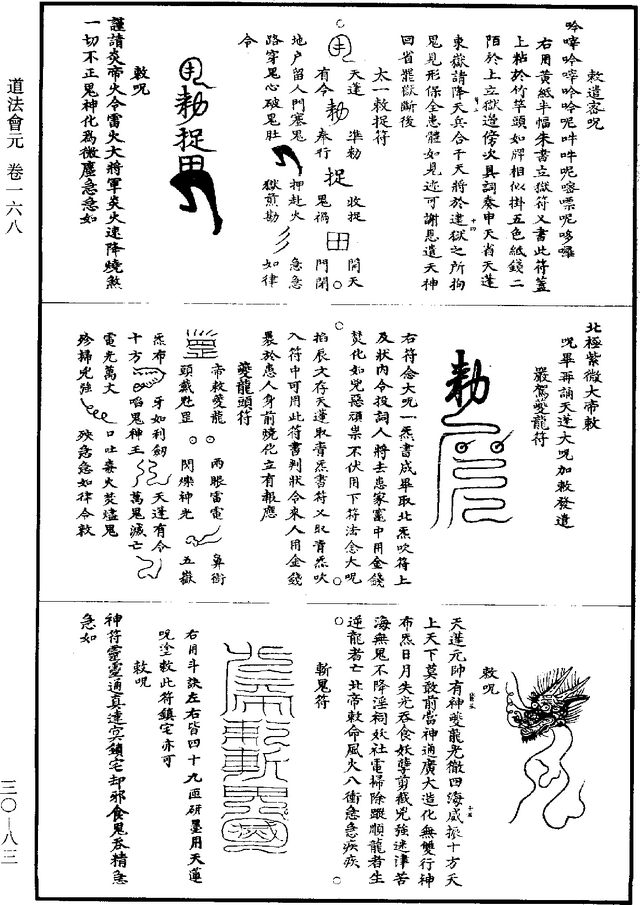 道法會元 卷一六八
三〇—八三
敕遣密呪
吽㖿吽㖿吟吟呢吽吽呢嘧㗖呢哆囉
右用黃紙半幅朱書立獄符又書此符蓋
上粘於竹竿頭如牌相似掛五色紙錢二
陌於上立獄邊傍次具詞奏申天省天蓬
東嶽請降天兵合干天將於建獄之所拘
鬼見形保全患體如見迹可謝恩遣天神
回省罷獄斷後
太一敕捉符
天蓬 準勑 收捉 開天
有令 奉行 鬼禍 門閉
地户留人門塞鬼 押赴火 急急
路穿鬼心破鬼肚 獄煎勘 如律
令
勑 捉 田
勑捉田
敕呪
謹請炎帝火令雷火大將軍炎火速降燒煞
一切不正鬼神化為微塵急急如
北極紫微大帝敕
呪畢再誦天蓬大呪加敕發遣
嚴駕夔龍符
勑
右符念大呪一炁書成畢取北炁吹符上
及狀內令投詞人將去患家竈中用金錢
焚化如兇惡頑祟不伏用下符法念大呪
掐辰文存天蓬取青炁書符又取青炁吹
入符中可用此符書判狀令來人用金錢
裹於患人身前燒化立有報應
夔龍頭符
帝敕夔龍 兩眼雷電 鼻衝
頭戴魁罡 閃爍神光 五嶽
炁布 牙如利劒 天蓬有令
十方 啗鬼神王 萬鬼滅亡
電光萬丈 口吐毒火焚爐鬼
殄掃兇強 殃急急如律令敕
敕呪
天蓬元帥有神夔龍光徹四海威振十方天
上天下莫敢前當神通廣大造化無雙行神
布炁日月失光吞食妖孽剪截兇強迷津苦
海無鬼不降淫祠妖社電掃除蹤順龍者生
逆龍者亡北帝敕命風火八衝急急疾疾
斬鬼符
右用斗訣左右皆四十九匝研墨用天蓬
呪塗敕此符鎮宅亦可
敕呪
神符靈靈通真達冥鎮宅却邪食鬼吞精急
急如